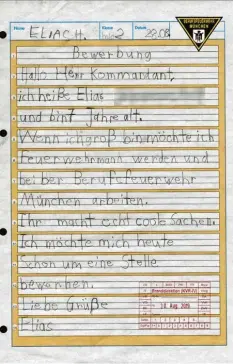 Name ELIAS H. Klasse 2 Datum
BERUFSFEUERWEHR
MÜNCHEN
Bewerbung
Hallo Herr Kommandant,
ich heiße Elias
und bin 7 Jahre alt.
Wenn ich groß bin möchte ich
Feuerwehrmann werden und
bei ber Berufsfeuerwehr
München arbeiten.
Ihr macht echt coole Sachen.
Ich möchte mich heute
schon um eine Stelle
bewerben.
Liebe Grüße
Elias
Branddirektion (KVR-IV)
Aug. 2019